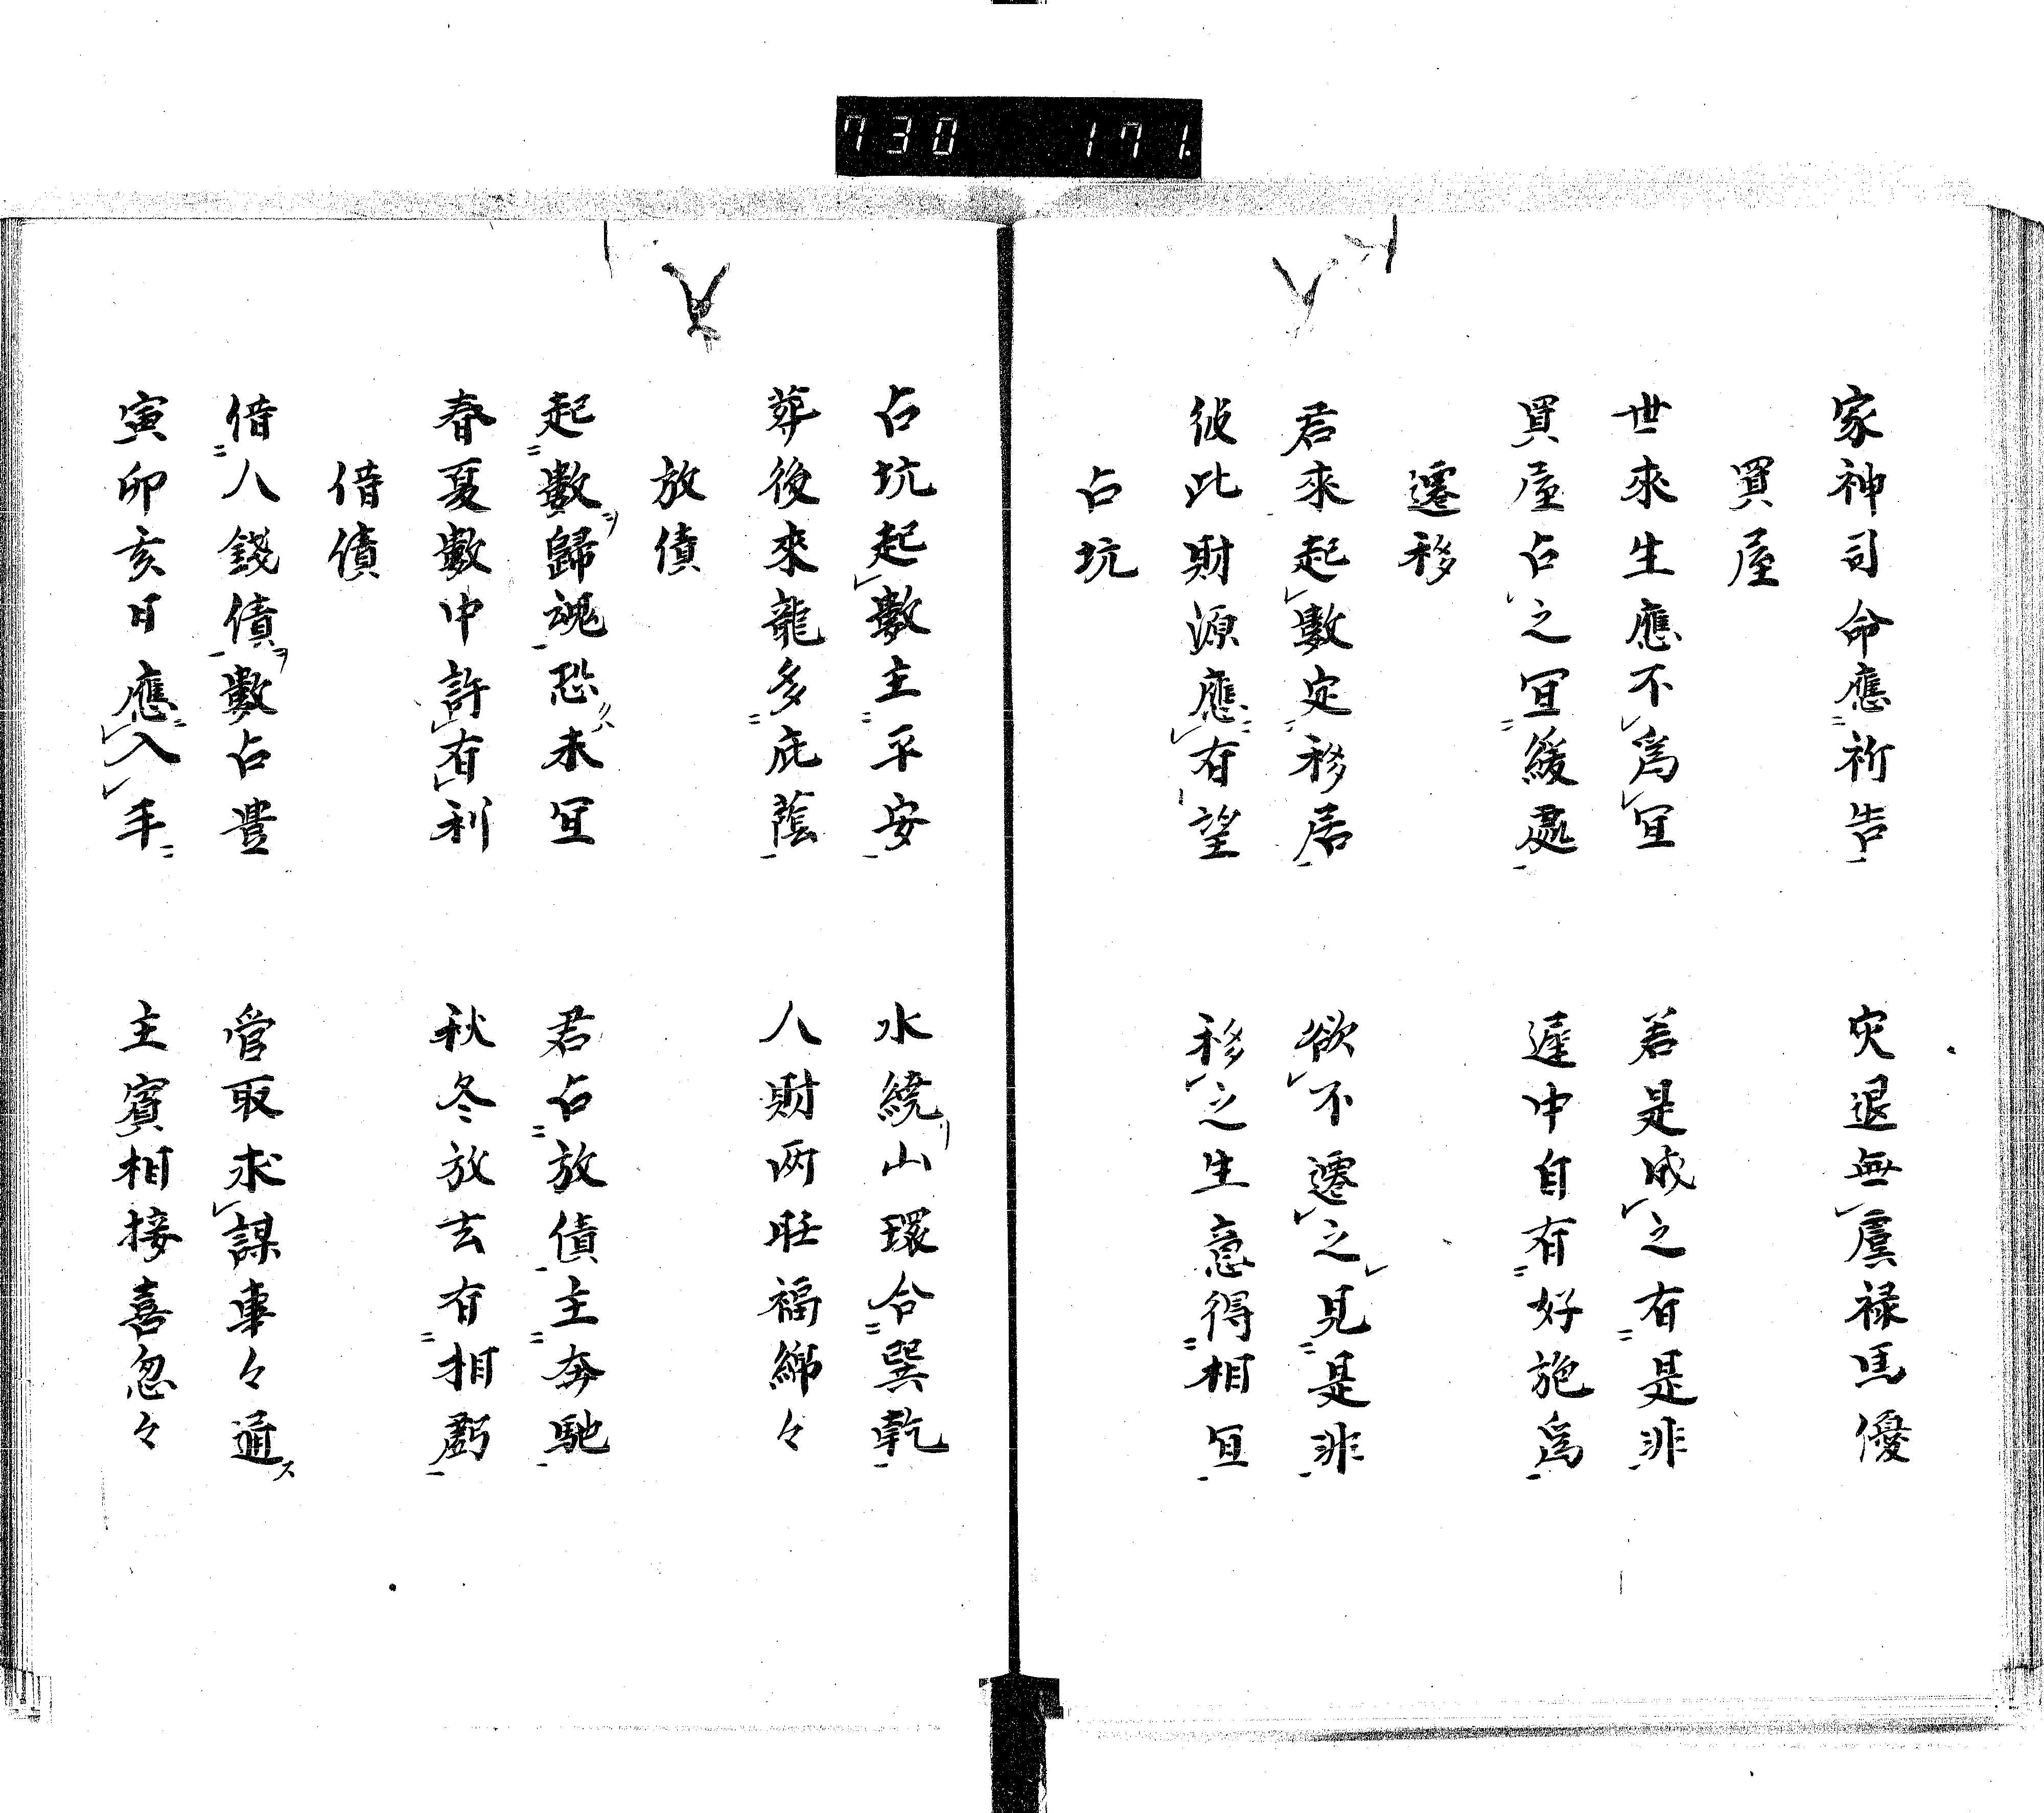 730 171.
家神司命應祈告 灾退無虞禄馬優
買屋
世來生應不為冝 若是成之有是非
買屋占之冝緩處 遲中自有好施為
遷移
君來起數定移居 欲不遷之見是非
彼此財源應有望 移之生意得相冝
占坑
占坑起數主平安 水繞山環合巽乾
葬後來龍多庇蔭 人財两旺福綿々
放債
起數歸魂恐未冝 君占放債主奔馳
春夏數中許有利 秋冬放去有相虧
借債
借人錢債數占豊 管取求謀事々通
寅卯亥日應入手 主賓相接喜忽々